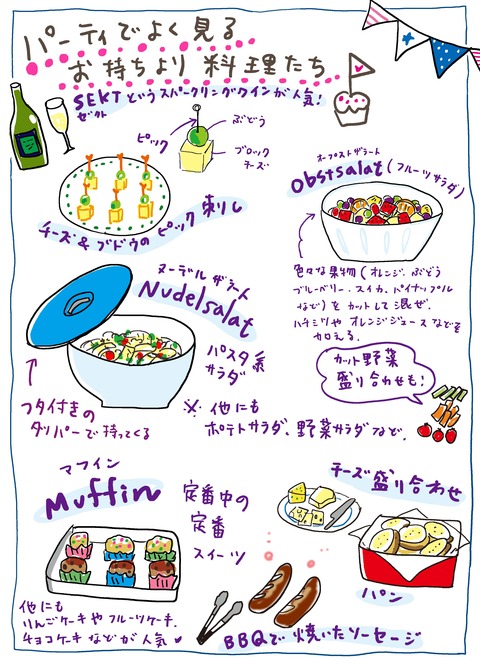 パーティでよく見る
お持ちより料理たち
SEKTというスパークリングワインが人気!
ゼクト
ピック
ぶどう
ブロック
チーズ
チーズ&ブドウのピック刺し
オープストザラート
Obstsalat(フルーツサラダ)
色々な果物(オレンジ、ぶどう
ブルーベリー、スイカ、パイナップル
など)をカットして混ぜ、
ハチミツやオレンジジュースなどを
加える。
ヌーデルザラート
Nudelsalat
パスタ系
サラダ
フタ付きの
タッパーで持ってくる
※他にも
ポテトサラダ、野菜サラダなど。
カット野菜
盛り合わせも!
マフィン
Muffin
定番中の
定番
スイーツ
他にも
りんごケーキやフルーツケーキ、
チョコケーキなどが人気♥
チーズ盛り合わせ
パン
BBQで焼いたソーセージ